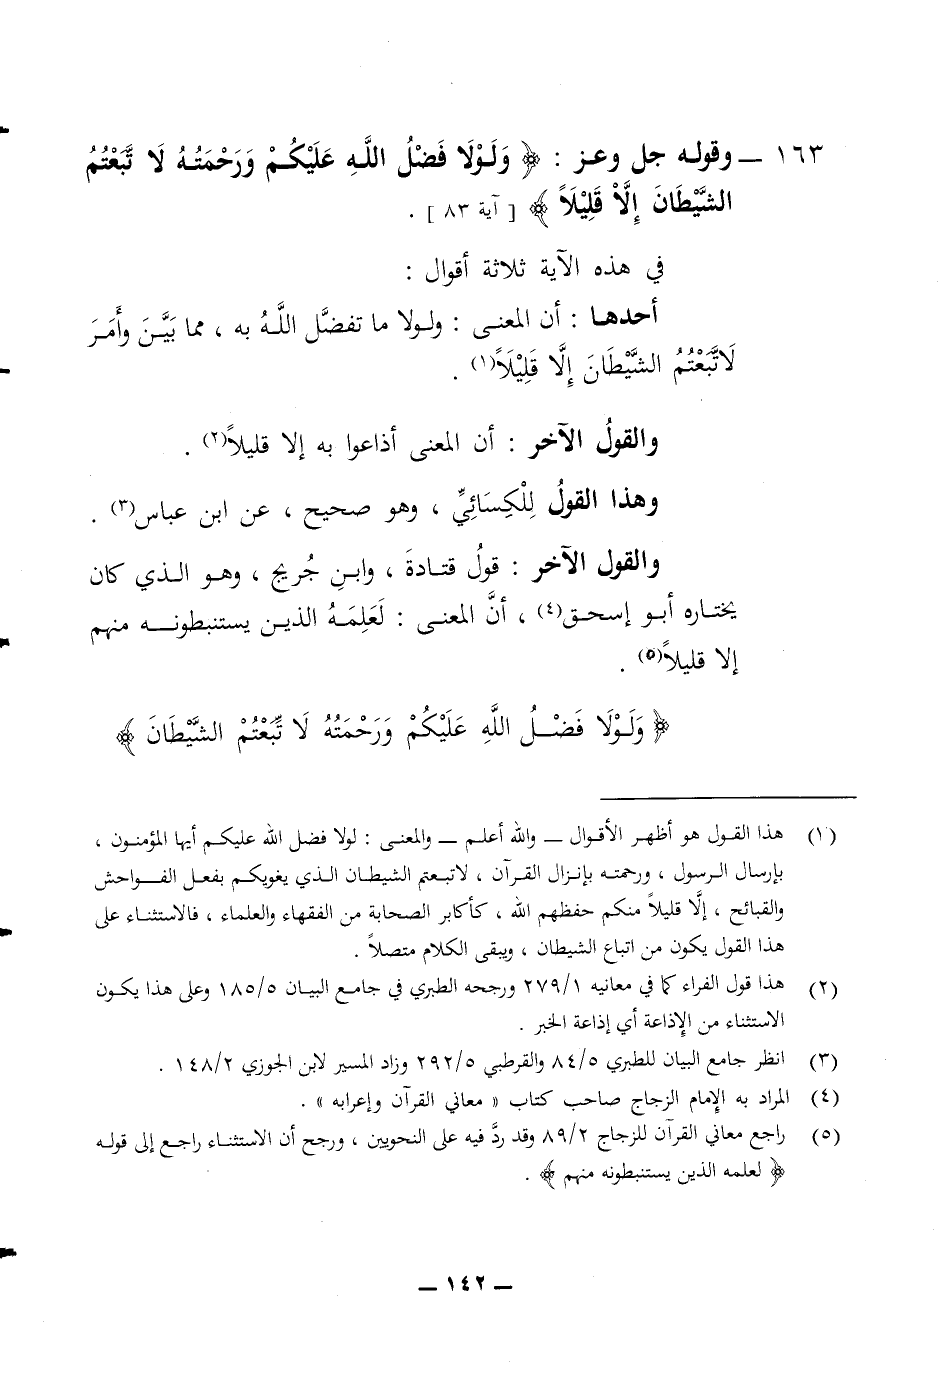 ١٦٣ ــ وقوله جل وعز : ﴿ وَلَوْلَا فَضْلُ اللَّهِ عَلَيْكُمْ وَرَحْمَتُهُ لَا تَّبَعْتُمُ
الشَّيْطَانَ إِلَّاْ قَلِيْلَاً ﴾ [ آية ٨٣ ] .
في هذه الآية ثلاثة أقوال :
أحدهـا : أن المعنـى : ولـولا ما تفضَّل اللَّـهُ به ، مما بَيَّـنَ وأَمَرَ
لَاتَّبَعْتُمُ الشَّيْطَانَ إِلَّا قَلِيْلَاً(١) .
والقولُ الآخر : أن المعنى أذاعوا به إلا قليلاً(٢) .
وهذا القولُ لِلْكِسَائِيِّ ، وهو صحيح ، عن ابن عباس(٣) .
والقول الآخر : قولُ قتـادةَ ، وابـنِ جُريج ، وهـو الـذي كان
يختـاره أبـو إسحـق(٤) ، أنَّ المعنـى : لَعَلِمَـهُ الذيـن يستنبطونـــه منهم
إلا قليلاً(٥) .
﴿ وَلَـوْلَا فَضْــلُ اللَّهِ عَلَيْكُمْ وَرَحْمَتُهُ لَا تَّبَعْتُمْ الشَّيْطَانَ ﴾
(١) هذا القـول هو أظهـر الأقـوال ــ والله أعلـم ــ والمعنـى : لولا فضل الله عليكـم أيها المؤمنـون ،
بإرسال الـرسول ، ورحمتـه بإنـزال القـرآن ، لاتبعتم الشيطان الـذي يغويكـم بفعـل الفـــواحش
والقبائح ، إلَّا قليلاً منكم حفظهم الله ، كأكابر الصحابة من الفقهاء والعلماء ، فالاستثنـاء على
هذا القول يكون من اتباع الشيطان ، ويبقى الكلام متصلاً .
(٢) هذا قول الفراء كما في معانيه ٢٧٩/١ ورجحه الطبري في جامع البيـان ١٨٥/٥ وعلى هذا يكـون
الاستثناء من الإِذاعة أي إذاعة الخبر .
(٣) انظر جامع البيان للطبري ٨٤/٥ والقرطبي ٢٩٢/٥ وزاد المسير لابن الجوزي ١٤٨/٢ .
(٤) المراد به الإِمام الزجاج صاحب كتاب « معاني القرآن وإعرابه » .
(٥) راجع معاني القرآن للزجاج ٨٩/٢ وقد ردَّ فيه على النحويين ، ورجح أن الاستثناء راجع إلى قولـه
﴿ لعلمه الذين يستنبطونه منهم ﴾ .
ــ ١٤٢ ــ